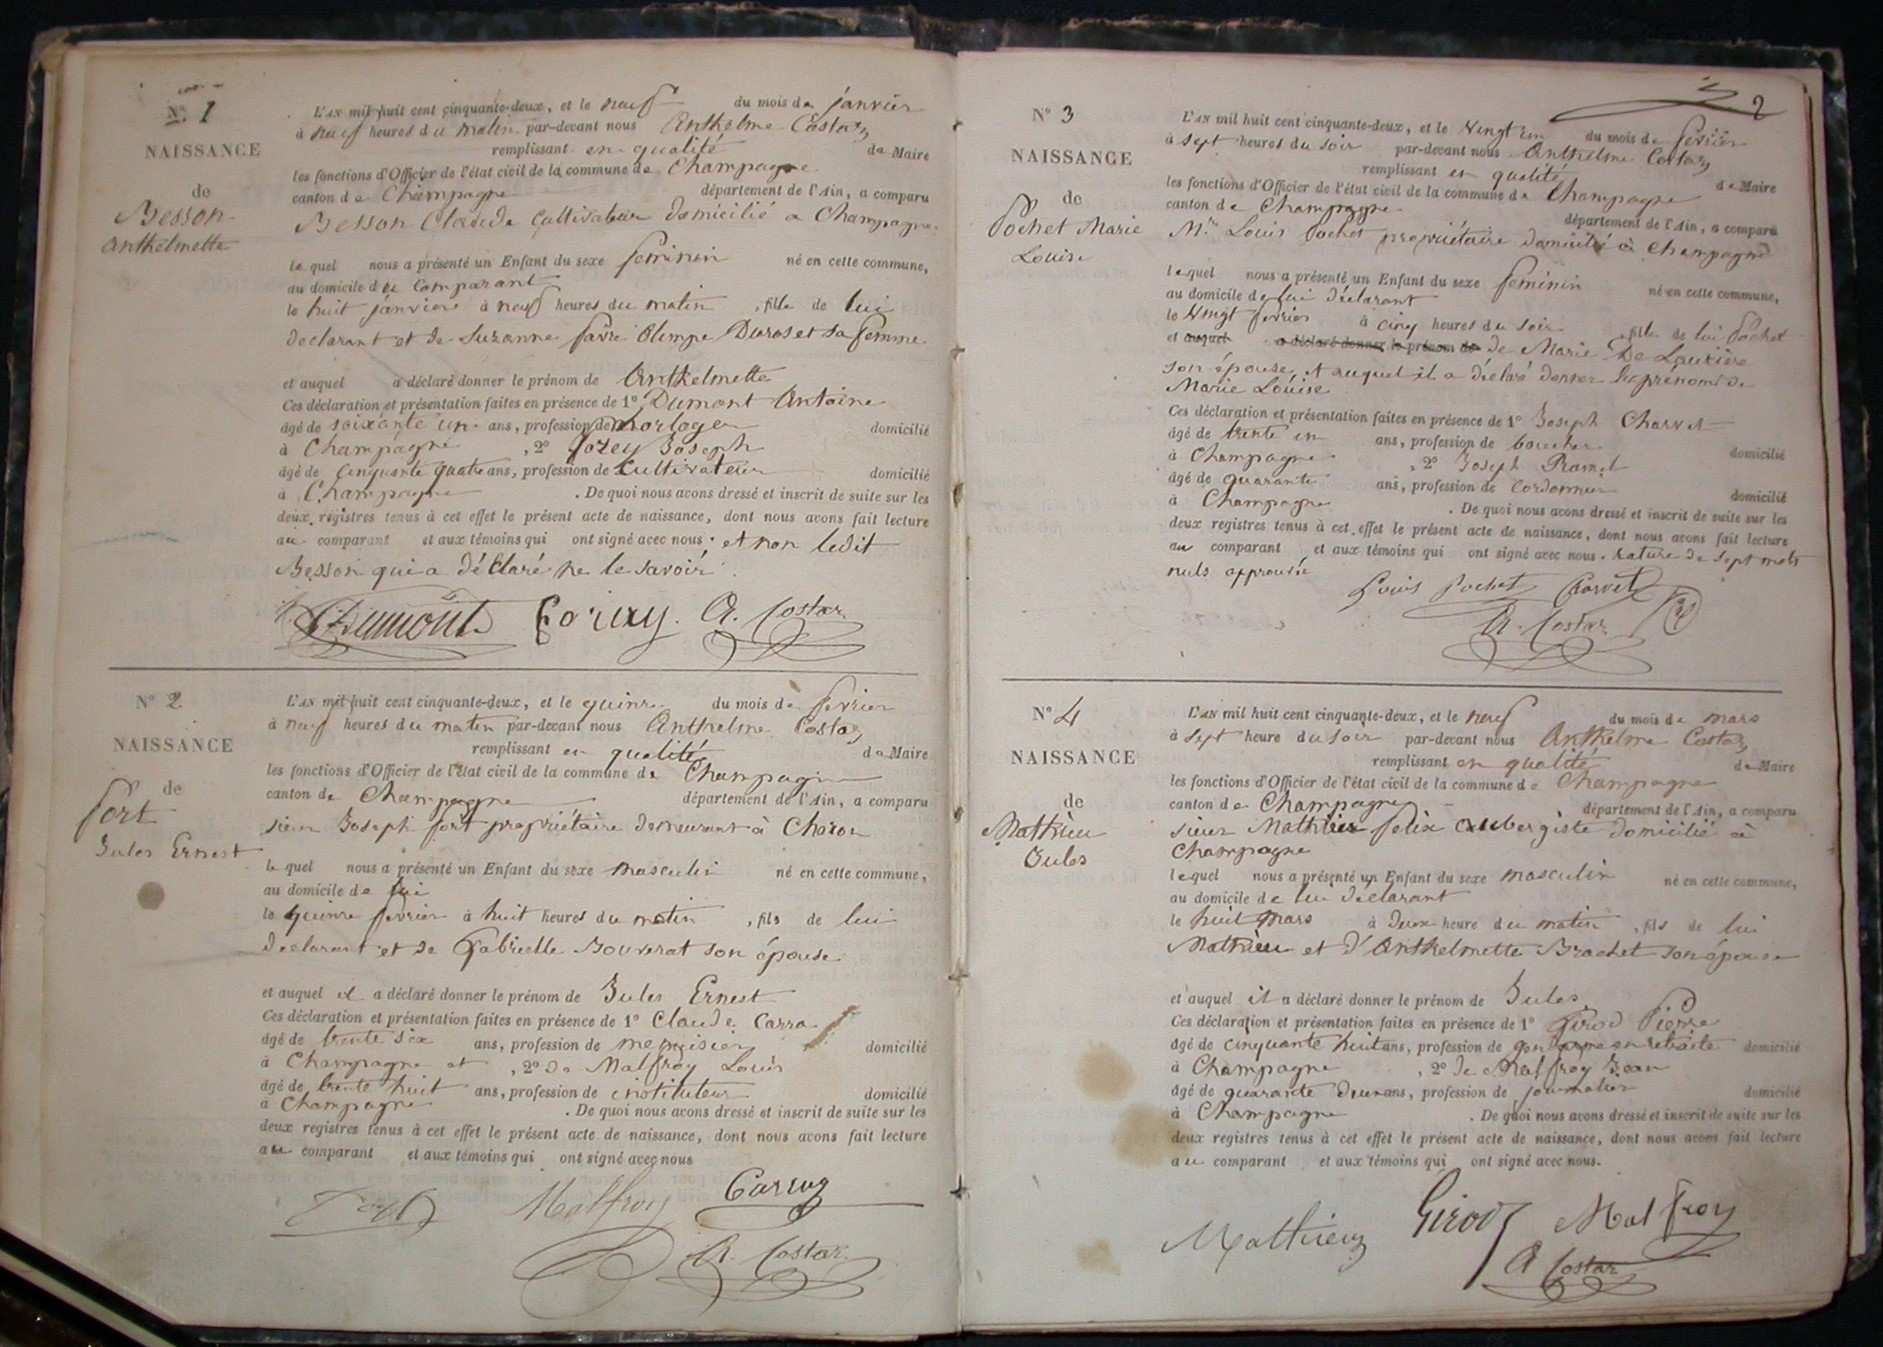 N° 1
NAISSANCE
de
Besson
Anthelmette
L'AN mil huit cent cinquante-deux, et le neuf du mois de janvier
à neuf heures du matin par-devant nous Anthelme Costaz
remplissant en qualité de Maire
les fonctions d'Officier de l'état civil de la commune de Champagne
canton de Champagne département de l'Ain, a comparu
Besson Claude Cultivateur domicilié a Champagne
lequel nous a présenté un Enfant du sexe féminin né en cette commune,
au domicile du comparant
le huit janvier à neuf heures du matin, fille de lui
declarant et de Suzanne favre Olimpe sa femme
et auquel a déclaré donner le prénom de Anthelmette
Ces déclaration et présentation faites en présence de 1° Dumont Antoine
âgé de soixante un ans, profession de horloger domicilié
à Champagne, 2° Joseph
âgé de cinquante quatre ans, profession de Cultivateur domicilié
à Champagne. De quoi nous avons dressé et inscrit de suite sur les
deux registres tenus à cet effet le présent acte de naissance, dont nous avons fait lecture
au comparant et aux témoins qui ont signé avec nous. et non ledit
Besson qui a déclaré ne le savoir.
Dumont A. Costaz
N° 2
NAISSANCE
de
fort
Jules Ernest
L'AN mil huit cent cinquante-deux, et le quinze du mois de fevrier
à neuf heures du matin par-devant nous Anthelme Costaz
remplissant en qualité de Maire
les fonctions d'Officier de l'état civil de la commune de Champagne
canton de Champagne département de l'Ain, a comparu
sieur Joseph fort propriétaire demeurant à
lequel nous a présenté un Enfant du sexe masculin né en cette commune,
au domicile de lui
le quinze fevrier à huit heures du matin, fils de lui
declarant et de Gabrielle Bouvrat son épouse
et auquel il a déclaré donner le prénom de Jules Ernest
Ces déclaration et présentation faites en présence de 1° Claude Carra
âgé de trente six ans, profession de menuisier domicilié
à Champagne et, 2° de Malfroy Louis
âgé de trente huit ans, profession de instituteur domicilié
à Champagne. De quoi nous avons dressé et inscrit de suite sur les
deux registres tenus à cet effet le présent acte de naissance, dont nous avons fait lecture
au comparant et aux témoins qui ont signé avec nous
Fort Malfroy
A. Costaz
2
N° 3
NAISSANCE
de
Pochet Marie
Louise
L'AN mil huit cent cinquante-deux, et le vingt un du mois de fevrier
à sept heures du soir par-devant nous Anthelme Costaz
remplissant en qualité de Maire
les fonctions d'Officier de l'état civil de la commune de Champagne
canton de Champagne département de l'Ain, a comparu
Mr Louis Pochet propriétaire domicilié à Champagne
lequel nous a présenté un Enfant du sexe féminin né en cette commune,
au domicile de lui déclarant
le vingt fevrier à cinq heures du soir, fille de lui Pochet
et auquel a déclaré donner le prénom de de Marie De Lauzière
son épouse, et auquel il a déclaré donner les prénoms de
Marie Louise
Ces déclaration et présentation faites en présence de 1° Joseph Charvet
âgé de trente un ans, profession de boucher
à Champagne, 2° Joseph domicilié
âgé de quarante ans, profession de cordonnier
à Champagne domicilié
. De quoi nous avons dressé et inscrit de suite sur les
deux registres tenus à cet effet le présent acte de naissance, dont nous avons fait lecture
au comparant et aux témoins qui ont signé avec nous. rature de sept mots
nuls approuvée
Louis Pochet Charvet
A. Costaz
N° 4
NAISSANCE
de
Mathieu
Jules
L'AN mil huit cent cinquante-deux, et le neuf du mois de mars
à sept heure du soir par-devant nous Anthelme Costaz
remplissant en qualité de Maire
les fonctions d'Officier de l'état civil de la commune de Champagne
canton de Champagne département de l'Ain, a comparu
sieur Mathieu felix aubergiste domicilié à
Champagne
lequel nous a présenté un Enfant du sexe masculin né en cette commune,
au domicile de lui déclarant
le huit mars à deux heure du matin, fils de lui
Mathieu et d'Anthelmette Brachet son épouse
et auquel il a déclaré donner le prénom de Jules
Ces déclaration et présentation faites en présence de 1° Girod Pierre
âgé de cinquante huit ans, profession de gendarme en retraite domicilié
à Champagne, 2° de Malfroy Jean
âgé de quarante deux ans, profession de journalier domicilié
à Champagne. De quoi nous avons dressé et inscrit de suite sur les
deux registres tenus à cet effet le présent acte de naissance, dont nous avons fait lecture
au comparant et aux témoins qui ont signé avec nous.
Mathieu Girod Malfroy
A Costaz